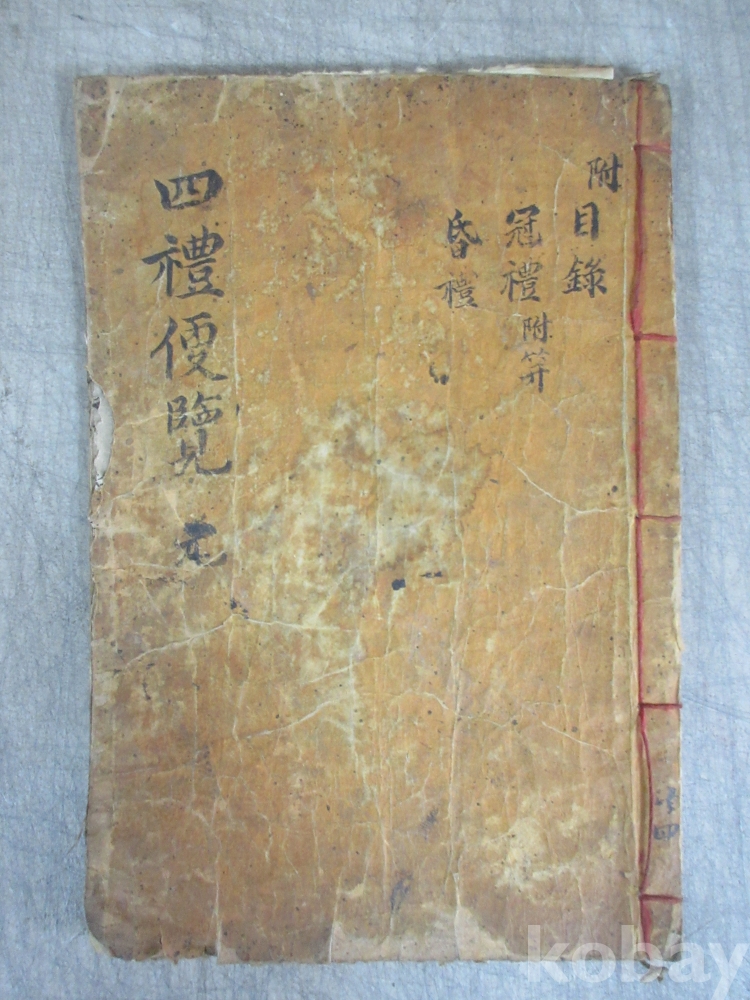 附
目錄
冠禮 附笄
昏禮
四禮便覽 元
共四
kobay